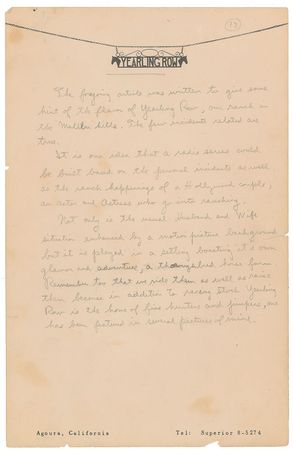 13
YEARLING ROW
The forgoing article was written to give some
hint of the charm of Yearling Row, our ranch in
the Malibu hills. The few incidents related are
true.
It is our idea that a radio series could
be built based on the personal incidents as well
as the ranch happenings of a Hollywood couple,
an actor and Actress who go into ranching.
Not only is the usual Husband and Wife
situation enhanced by a motion picture background
but it is played in a setting boasting it's own
glamor and adventure, a thoroughbred horse farm.
Remember too that we ride them as well as raise
them because in addition to racing stock Yearling
Row is the home of fine hunters and jumpers, one
has been featured in several pictures of mine.
Agoura, California Tel: Superior 8-5274